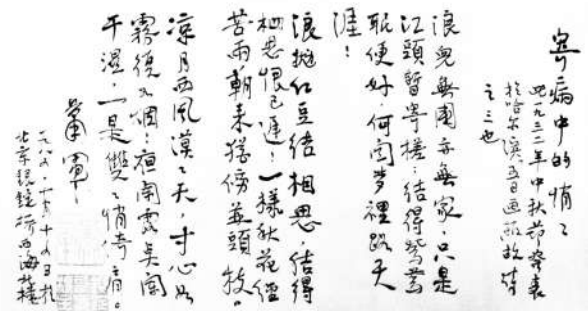 寄病中的悄々
此一九三二年中秋節發表
於哈尔濱五日画報故詩
之三也
浪兒無國亦無家，只是
江頭暫寄槎；結得鴛鴦
眠便好，何関夢裡路天
涯！
浪抛红豆結相思，結得
相思恨已遲；一樣秋花經
苦雨，朝来猶傍並頭枝。
涼月西風漠々天，寸心如
霧復如烟；夜闌露点闌
干濕，一是雙々悄倚肩。
蕭軍
一九八 十六日於
北京銀錠桥西海北楼